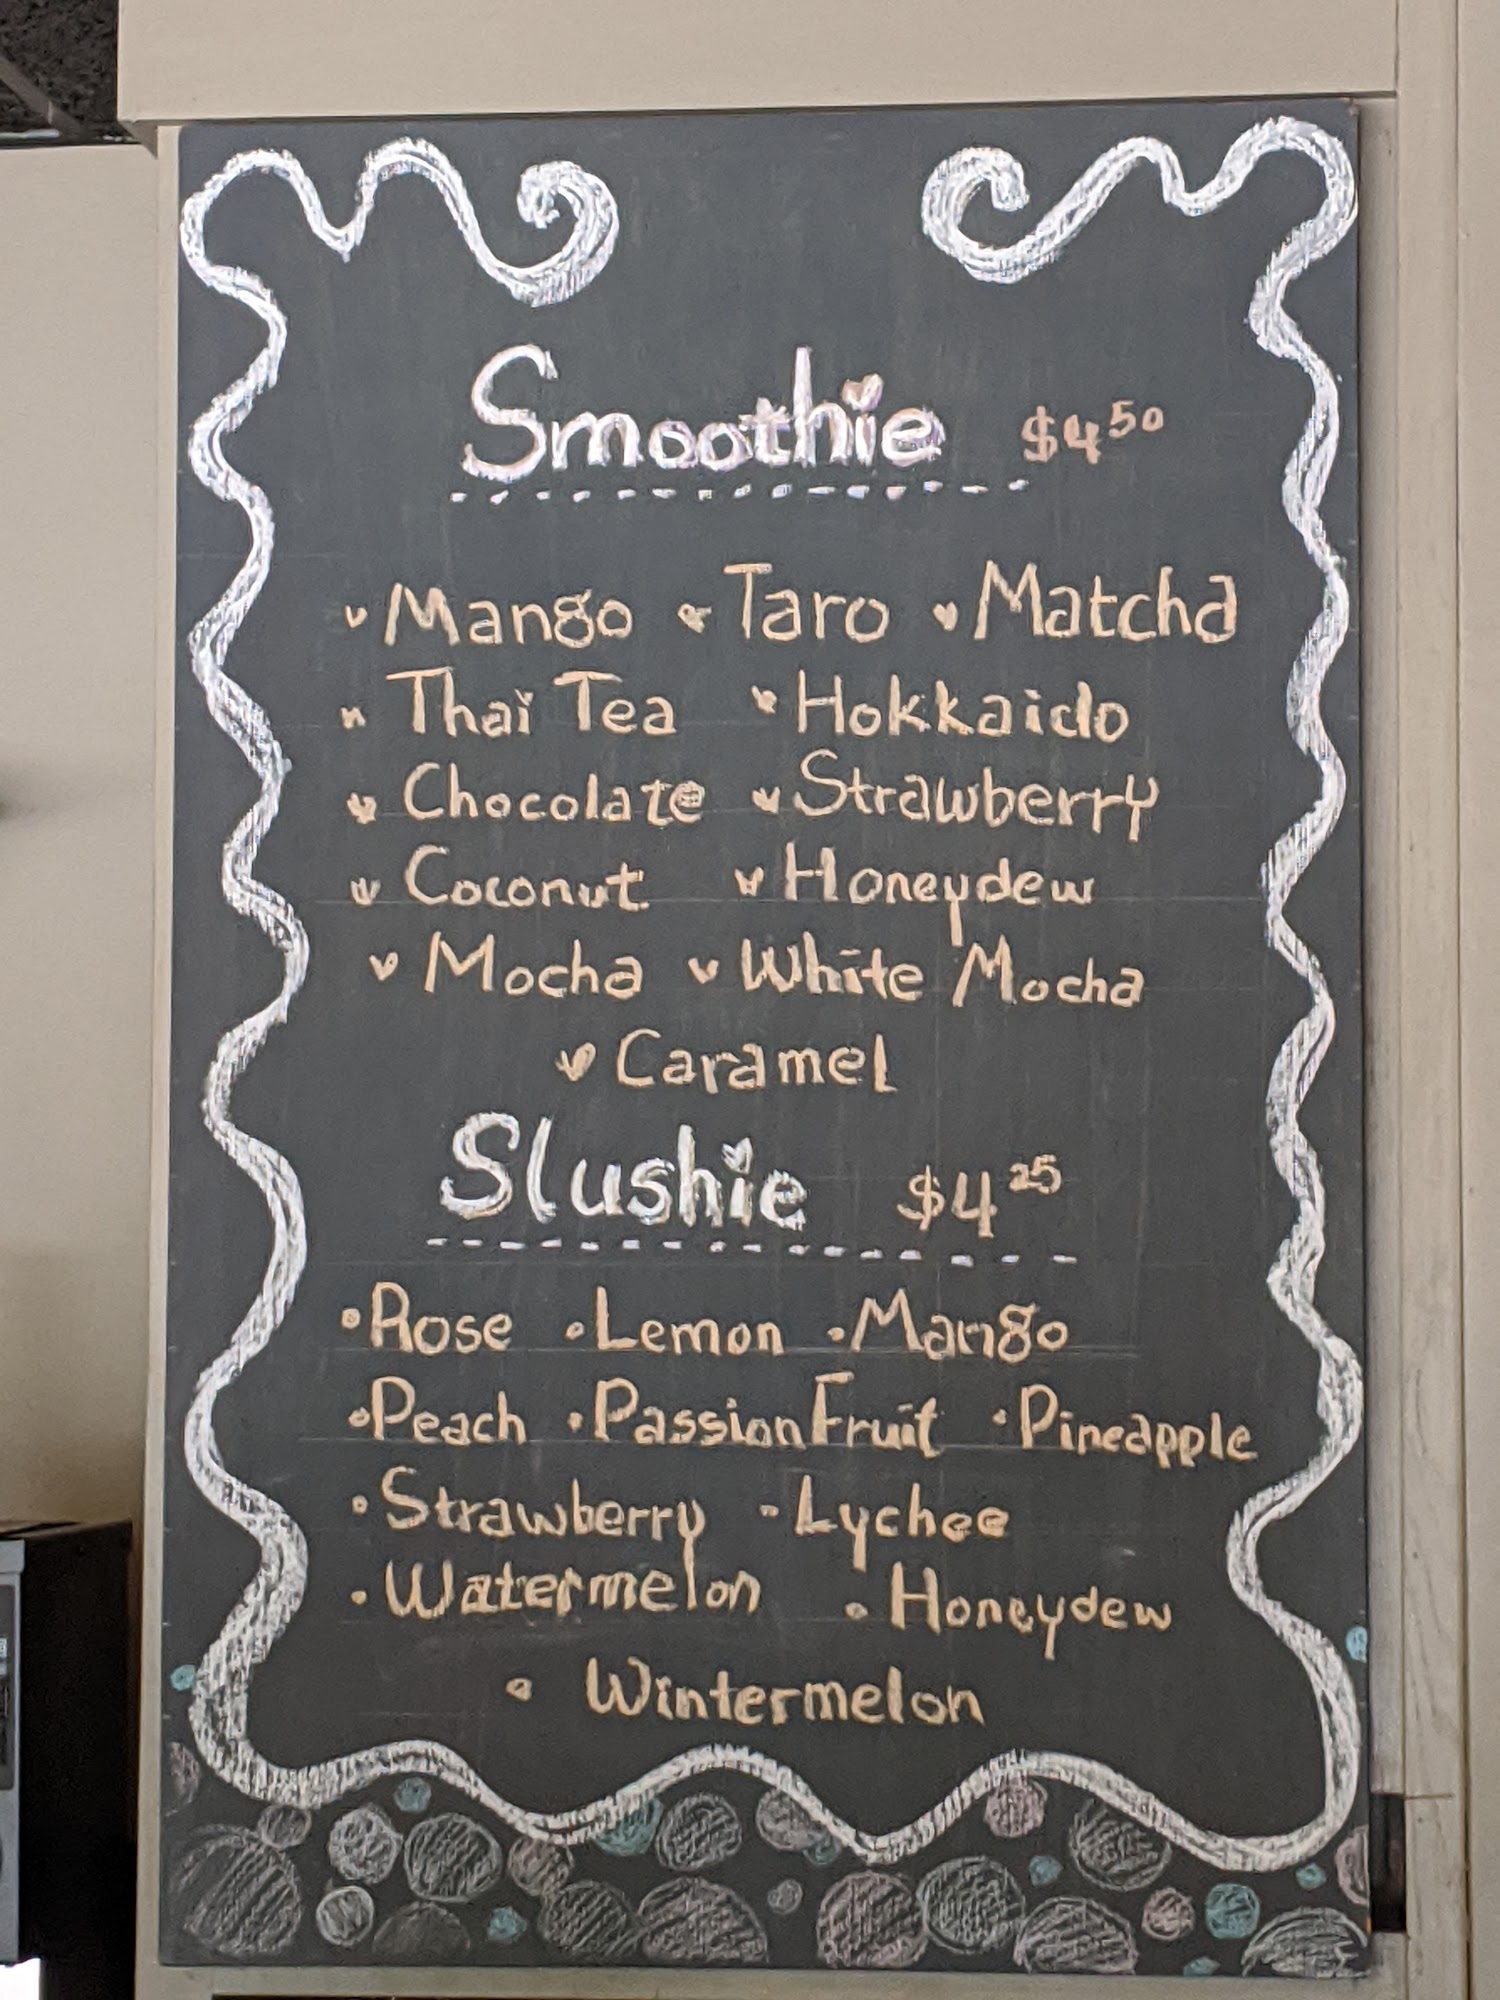 Smoothie $4.50
Mango Taro Matcha
Thai Tea Hokkaido
Chocolate Strawberry
Coconut Honeydew
Mocha White Mocha
Caramel
Slushie $4.25
Rose Lemon Mango
Peach Passion Fruit Pineapple
Strawberry Lychee
Watermelon Honeydew
Wintermelon